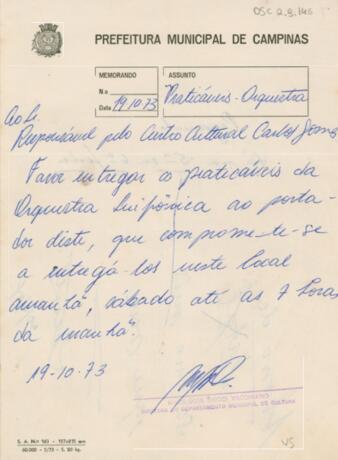 OSC 2.9.146
PREFEITURA MUNICIPAL DE CAMPINAS
MEMORANDO
N.o
Data 19.10.73
ASSUNTO
Praticáveis - Orquestra
Ao Sr.
Responsável pelo Centro Cultural Carlos Gomes
Favor entregar os praticáveis da
Orquestra Sinfônica ao porta-
dor deste, que compromete-se
a entregá-los neste local
amanhã, sábado até as 7 horas
da manhã.
19-10.73
DEPARTAMENTO MUNICIPAL DE CULTURA
S. A. N.o 163 -
60.000 -
VS